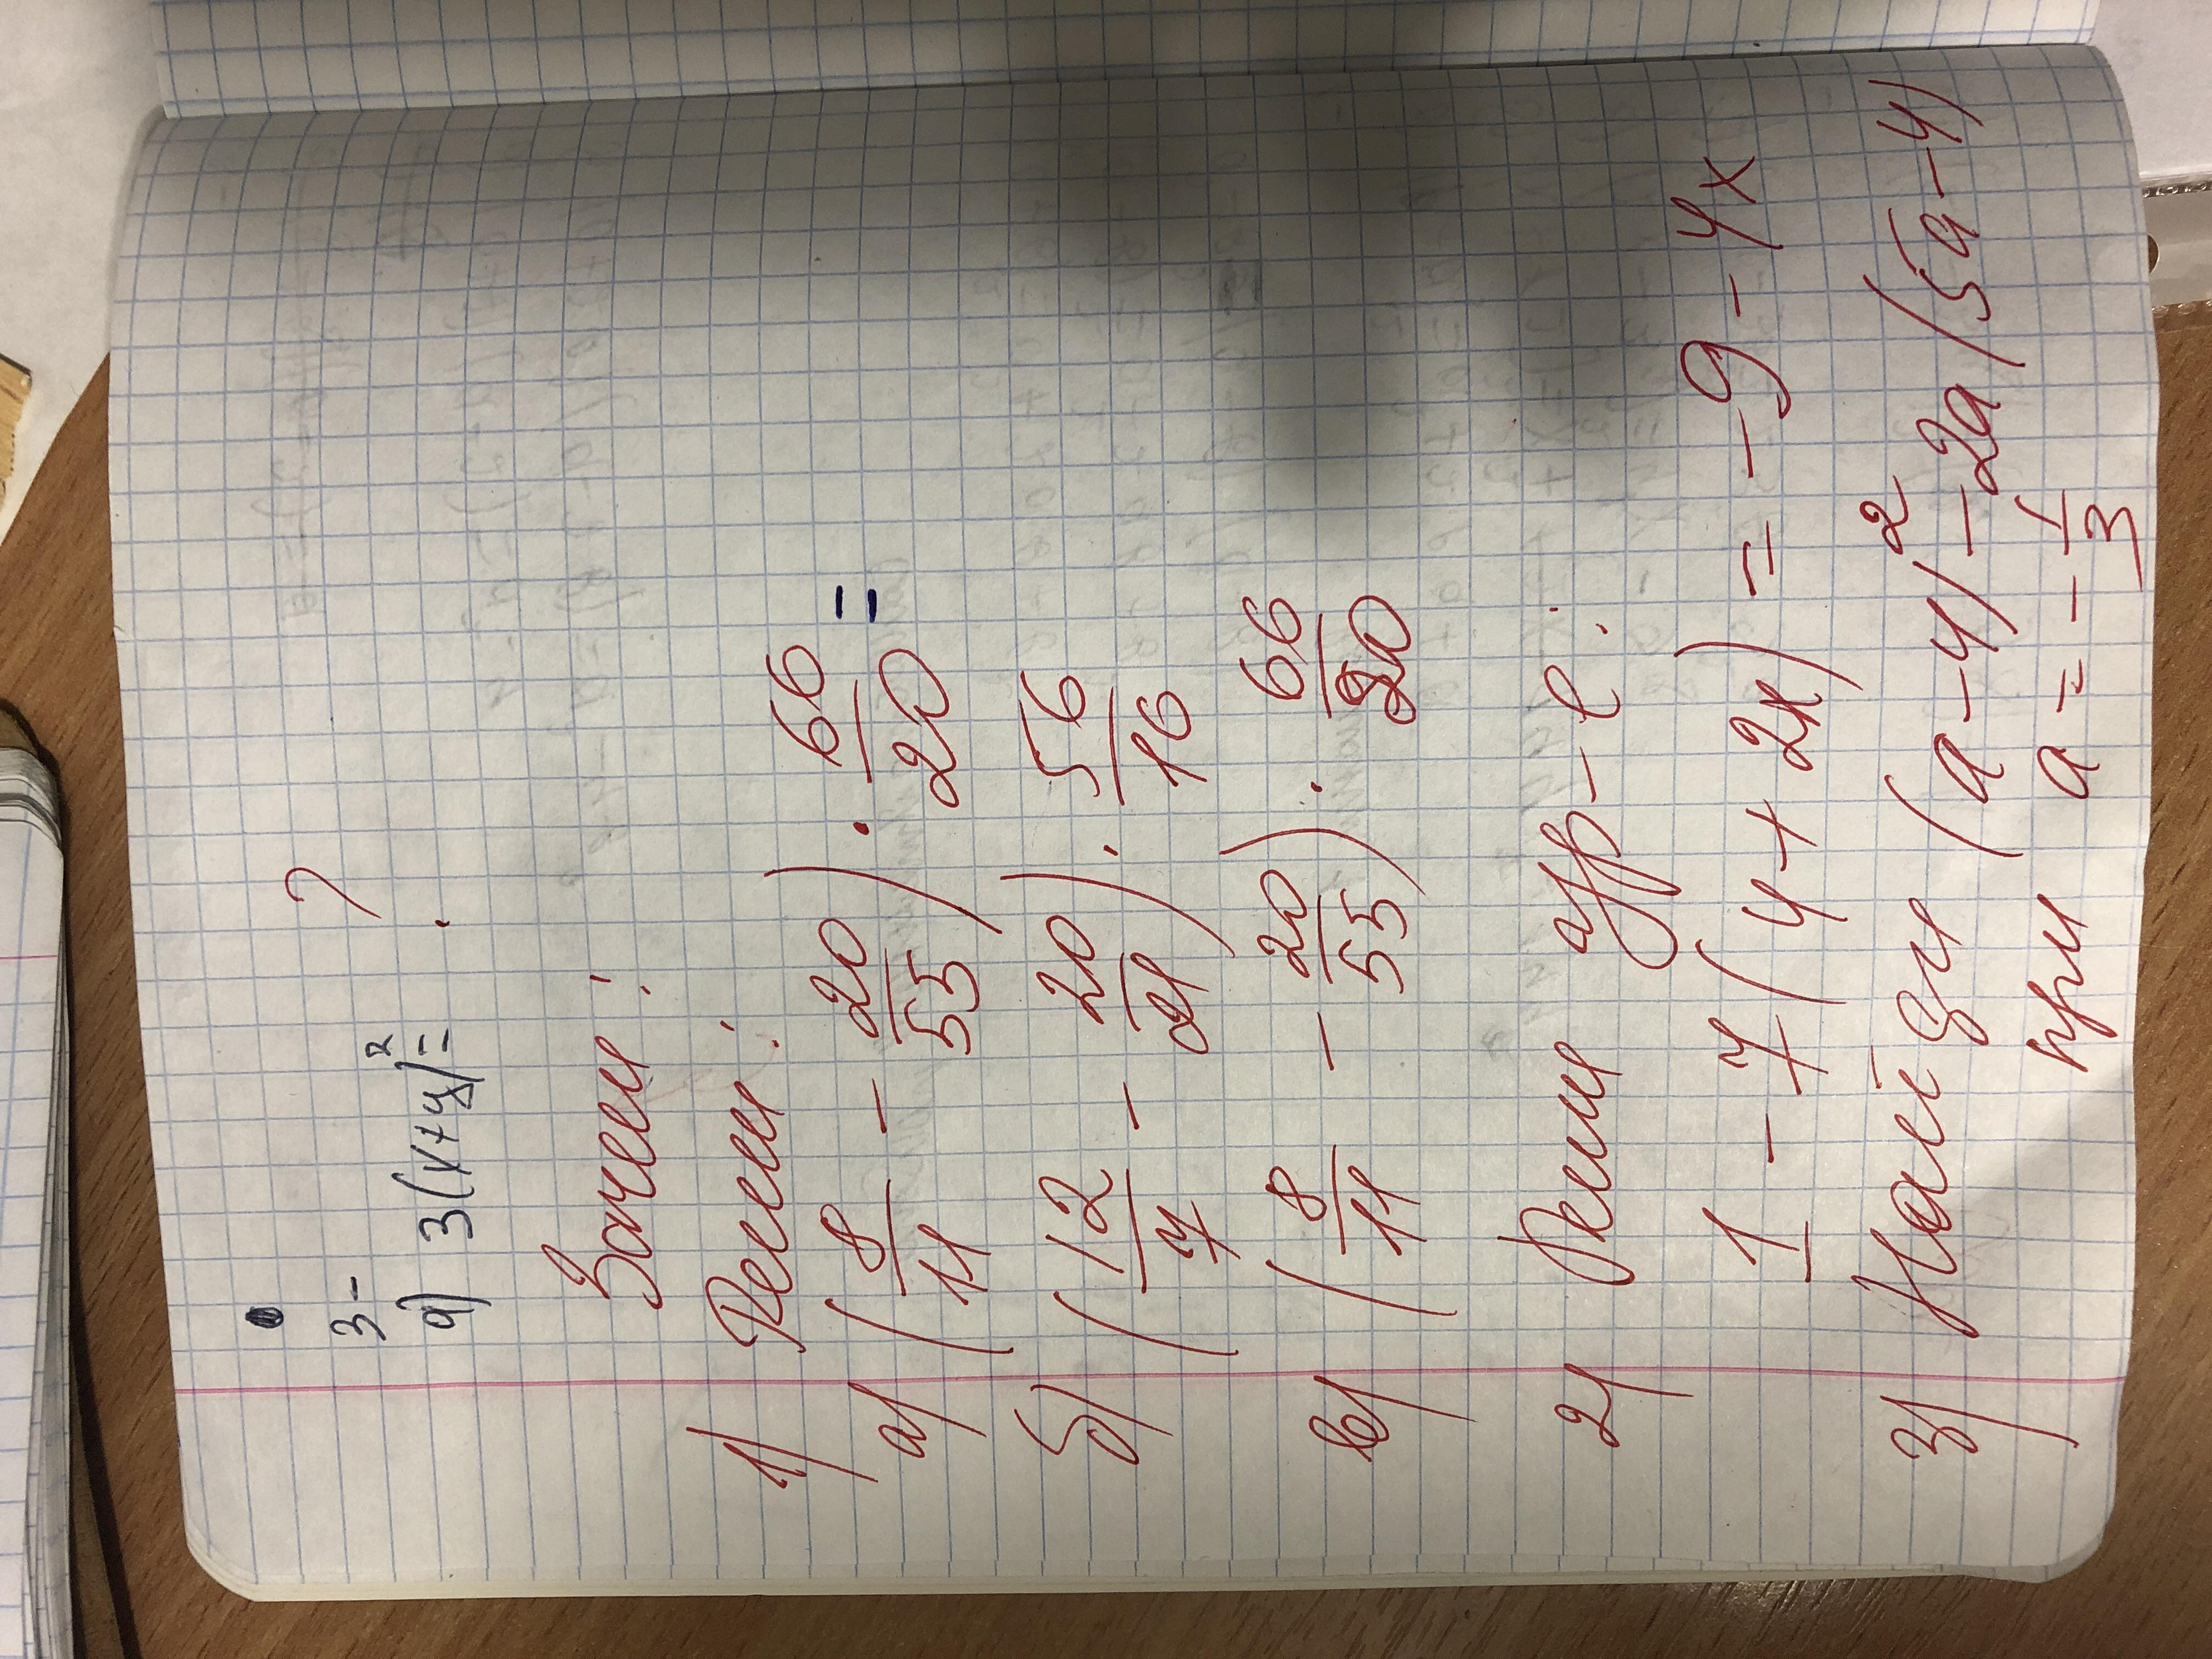 ?
3-
а) 3(x+y)²=
Зачем!
1) Реши:
а) (8/11 - 20/55) · 66/20 =
б) (12/7 - 20/21) · 56/16
в) (8/11 - 20/55) · 66/20
2) Реши ур-е:
1 - 7(4+2x) = -9-4x
3) Найди (a-4)² - 2a(5a-4)
при a = -1/3